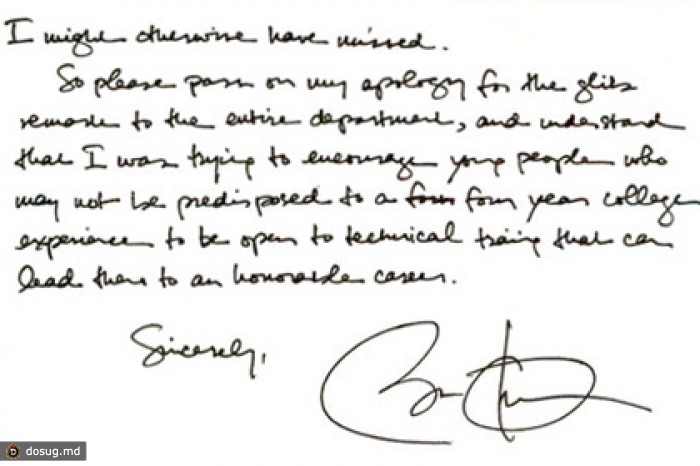 I might otherwise have missed.
So please pass on my apology for the glib
remark to the entire department, and understand
that I was trying to encourage young people who
may not be predisposed to a four year college
experience to be open to technical training that can
lead them to an honorable career.
Sincerely,
dosug.md